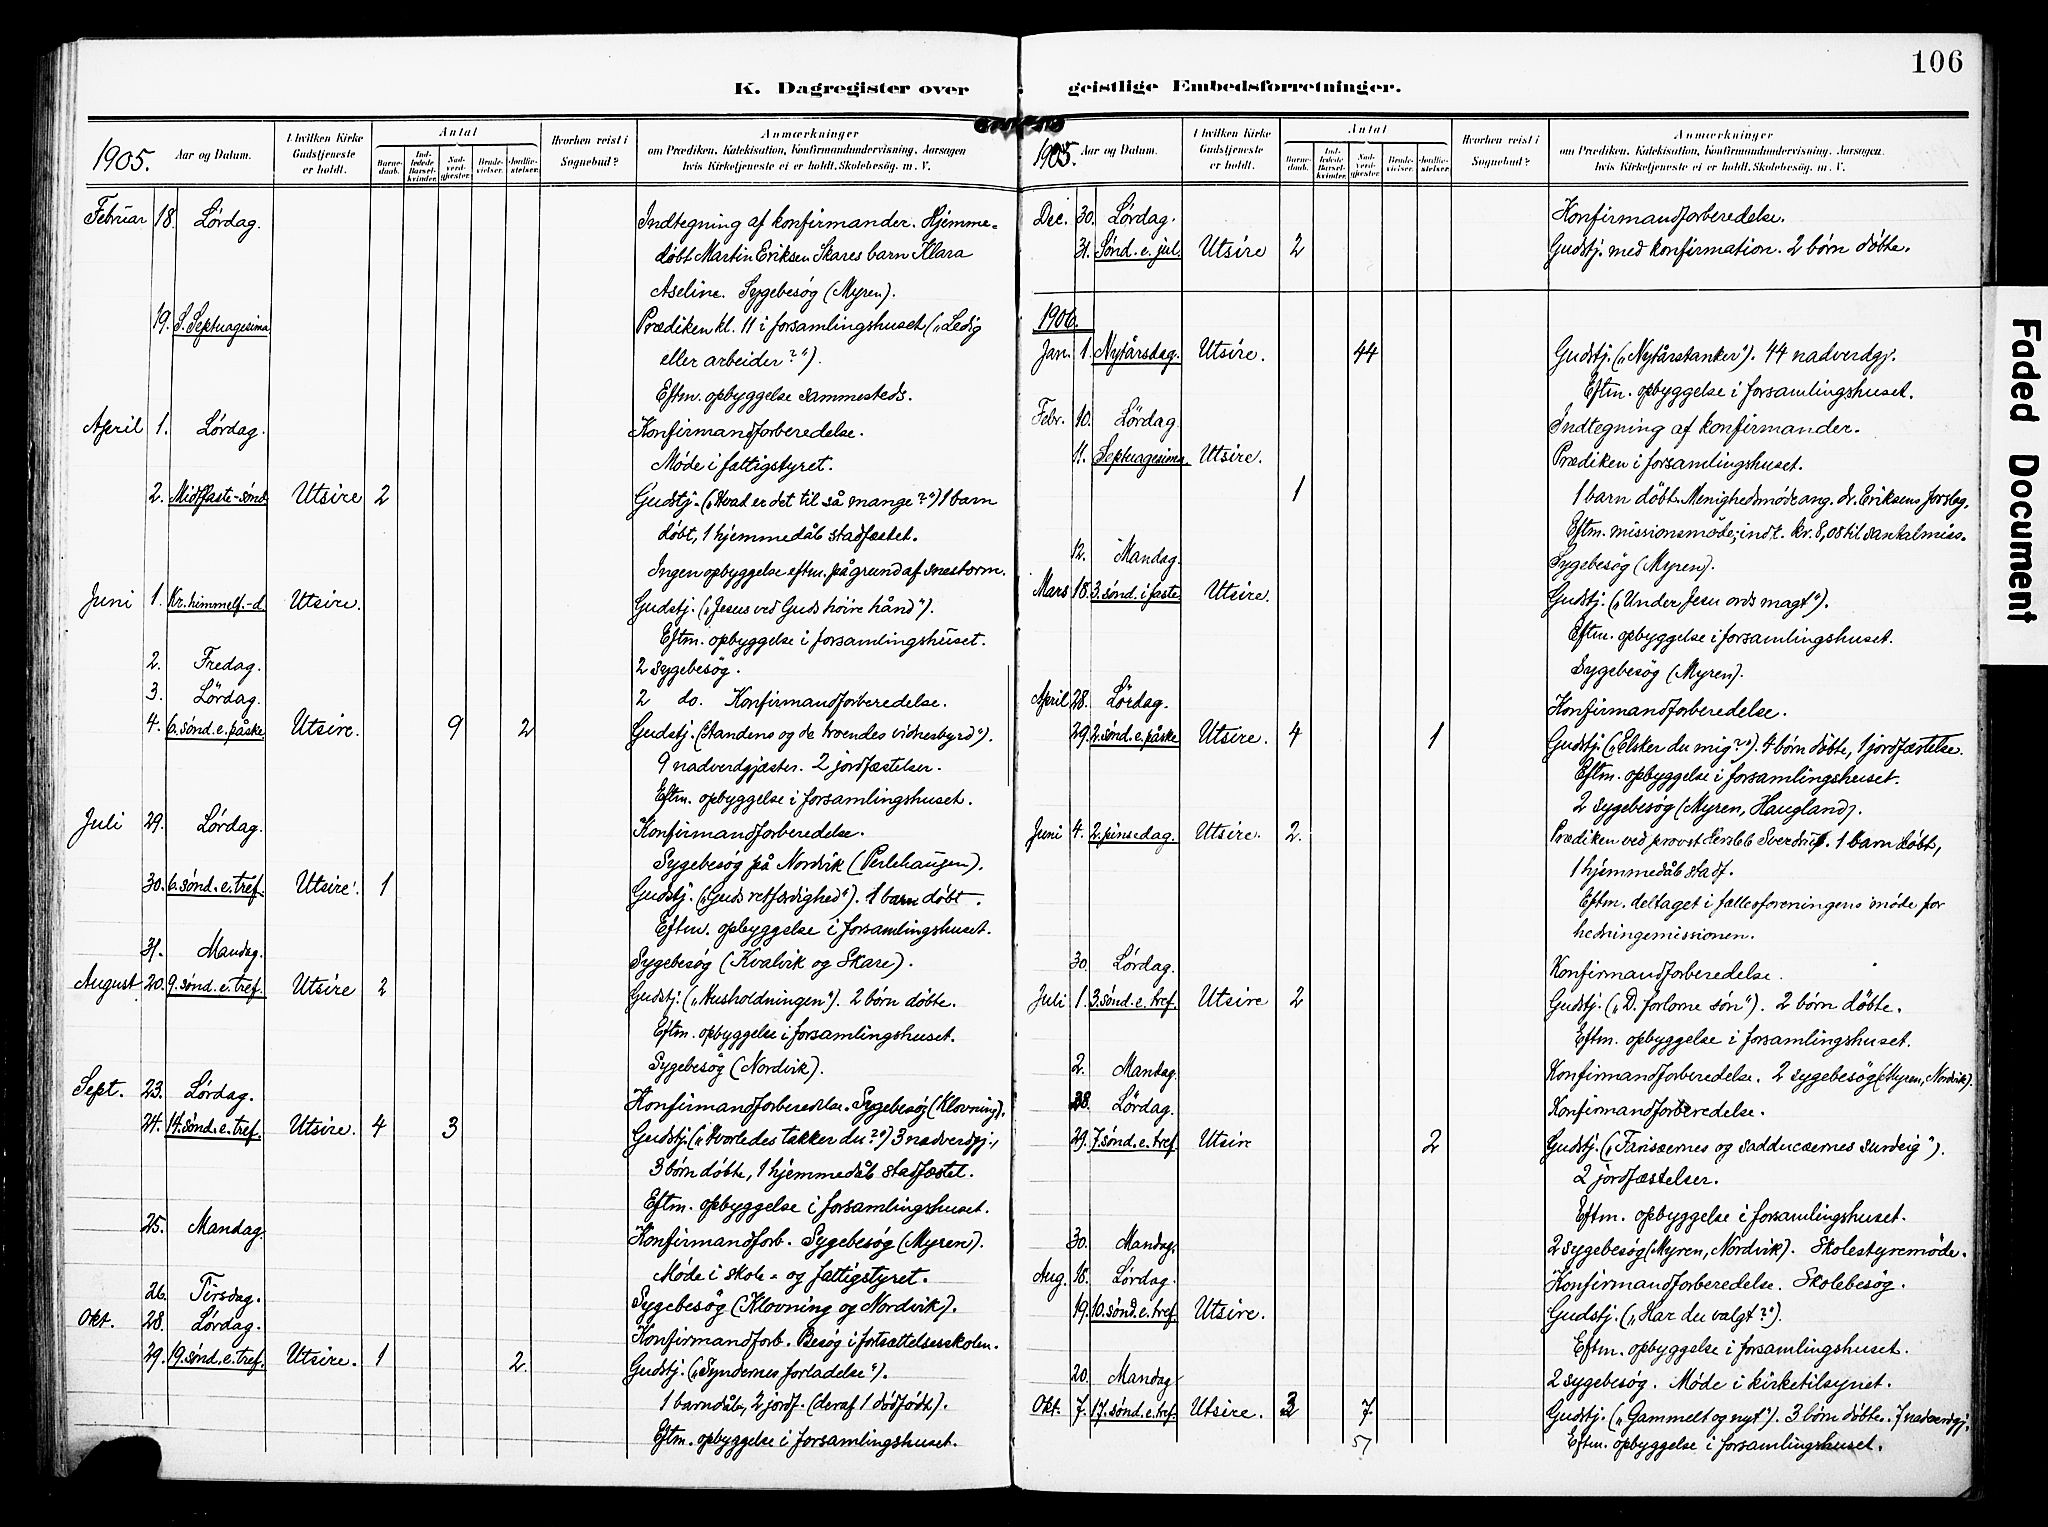 106
K. Dagregister over geistlige Embedsforretninger.
Faded Document
1905.
Aar og Datum.
I hvilken Kirke Gudstjeneste er holdt.
Antal
Barnedaab.
Indledede Barselkvinder.
Nadverdgjester.
Brudevielser.
Jordfæstelser.
Hvorhen reist i Sognebud?
Anmærkninger
om Prædiken, Katekisation, Konfirmandundervisning, Aarsagen
hvis Kirketjeneste ei er holdt, Skolebesøg, m. V.
Februar 18. Lördag. Indtegning af konfirmander. Hjemme-
døbt Martin Eriksen Skares barn Klara
Aseline. Sygebesøg (Myren).
19. S. Septuagesima Prædiken kl. 11 i forsamlingshuset („Ledig
eller arbeider?“).
Eftm. opbyggelse sammesteds.
April 1. Lördag. Konfirmandforberedelse.
Møde i fattigstyret.
2. Midtfaste-sønd. Utsire 2 Gudstj. („Hvad er det til så mange?“) 1 barn
døbt, 1 hjemmedåb stadfæstet.
Ingen opbyggelse eftm. på grund af snestorm.
Juni 1. Kr. himmelf.-d. Utsire. Gudstj. („Jesus ved Guds høire hånd“).
Eftm. opbyggelse i forsamlingshuset.
2. Fredag. 2 sygebesøg.
3. Lördag. 2 do. Konfirmandforberedelse.
4. 6. sønd. e. påske. Utsire. 9 2 Gudstj. (Aandens og de troendes vidnesbyrd“).
9 nadverdgjæster. 2 jordfæstelser.
Eftm. opbyggelse i forsamlingshuset.
Juli 29. Lördag. Konfirmandforberedelse.
Sygebesøg på Nordvik (Perlehaugen).
30. 6. sønd. e. tref. Utsire. 1 Gudstj. („Guds retfærdighed“). 1 barn døbt.
Eftm. opbyggelse i forsamlingshuset.
31. Mandag. Sygebesøg (Kvalvik og Skare).
August 20. 9. sønd. e. tref. Utsire 2 Gudstj. („Husholdningen“). 2 börn døbte.
Eftm. opbyggelse i forsamlingshuset.
Sygebesøg (Nordvik).
Sept. 23. Lördag. Konfirmandforberedelse. Sygebesøg (Klovning).
24. 14. sønd. e. tref. Utsire. 4 3 Gudstj. („Hvorledes takker du?“) 3 nadverdgj.,
3 börn døbte, 1 hjemmedåb stadfæstet.
Eftm. opbyggelse i forsamlingshuset.
25. Mandag. Konfirmandforb. Sygebesøg (Myren).
Møde i skole- og fattigstyret.
26. Tirsdag. Sygebesøg (Klovning og Nordvik).
Okt. 28. Lördag. Konfirmandforb. Besøg i fortsættelsesskolen.
29. 19. sønd. e. tref. Utsire. 1 2. Gudstj. („Syndernes forladelse“).
1 barndåb, 2 jordf. (deraf 1 dödfødt).
Eftm. opbyggelse i forsamlingshuset.
1905.
Aar og Datum.
I hvilken Kirke Gudstjeneste er holdt.
Antal
Barnedaab.
Indledede Barselkvinder.
Nadverdgjester.
Brudevielser.
Jordfæstelser.
Hvorhen reist i Sognebud?
Anmærkninger
om Prædiken, Katekisation, Konfirmandundervisning, Aarsagen
hvis Kirketjeneste ei er holdt, Skolebesøg, m. V.
Dec. 30. Lördag. Konfirmandforberedelse.
31. Sønd. e. jul. Utsire 2 Gudstj. med konfirmation. 2 börn døbte.
1906.
Jan. 1. Nytårsdag. Utsire. 44 Gudstj. („Nytårstanker“). 44 nadverdgj.
Eftm. opbyggelse i forsamlingshuset.
Febr. 10. Lördag. Indtegning af konfirmander.
11. Septuagesima. Utsire. Prædiken i forsamlingshuset.
1 1 barn døbt. Menighedsmøde ang. dr. Eriksens forslag.
Eftm. missionsmøde; indt. kr. 8,08 til santalmiss.
12. Mandag. Sygebesøg (Myren).
Mars 18. 3. sønd. i faste. Utsire. Gudstj. („Under Jesu ords magt“).
Eftm. opbyggelse i forsamlingshuset.
Sygebesøg (Myren).
April 28. Lördag. Konfirmandforberedelse.
29. 2. sønd. e. påske Utsire. 4 1 Gudstj. („Elsker du mig?“). 4 börn døbte, 1 jordfæstelse.
Eftm. opbyggelse i forsamlingshuset.
2 sygebesøg (Myren, Haugland).
Juni 4. 2. pinsedag. Utsire. 2. Prædiken ved provst Jersleb Sverdrup. 1 barn døbt,
1 hjemmedåb stadf.
Eftm. deltaget i fællesforeningens møde for
hedningemissionen.
30. Lördag. Konfirmandforberedelse.
Juli 1. 3. sønd. e. tref. Utsire 2 Gudstj. („D. forlorne søn“). 2 börn døbte.
Eftm. opbyggelse i forsamlingshuset.
2. Mandag. Konfirmandforberedelse. 2 sygebesøg (Myren, Nordvik).
28. Lördag. Konfirmandforberedelse.
29. 7. sønd. e. tref. Utsire 2 Gudstj. („Farisæernes og sadducæernes surdeig“).
2 jordfæstelser.
Eftm. opbyggelse i forsamlingshuset.
30. Mandag. 2 sygebesøg (Myren, Nordvik). Skolestyremøde.
Aug. 18. Lördag. Konfirmandforberedelse. Skolebesøg.
19. 10. sønd. e. tref. Utsire. Gudstj. („Har du valgt?“).
Eftm. opbyggelse i forsamlingshuset.
20. Mandag 2 sygebesøg. Møde i kirketilsynet.
Okt. 7. 17. sønd. e. tref. Utsire. 3 7. Gudstj. („Gammelt og nyt“). 3 börn døbte. 7 nadverdgj.
51 Eftm. opbyggelse i forsamlingshuset.